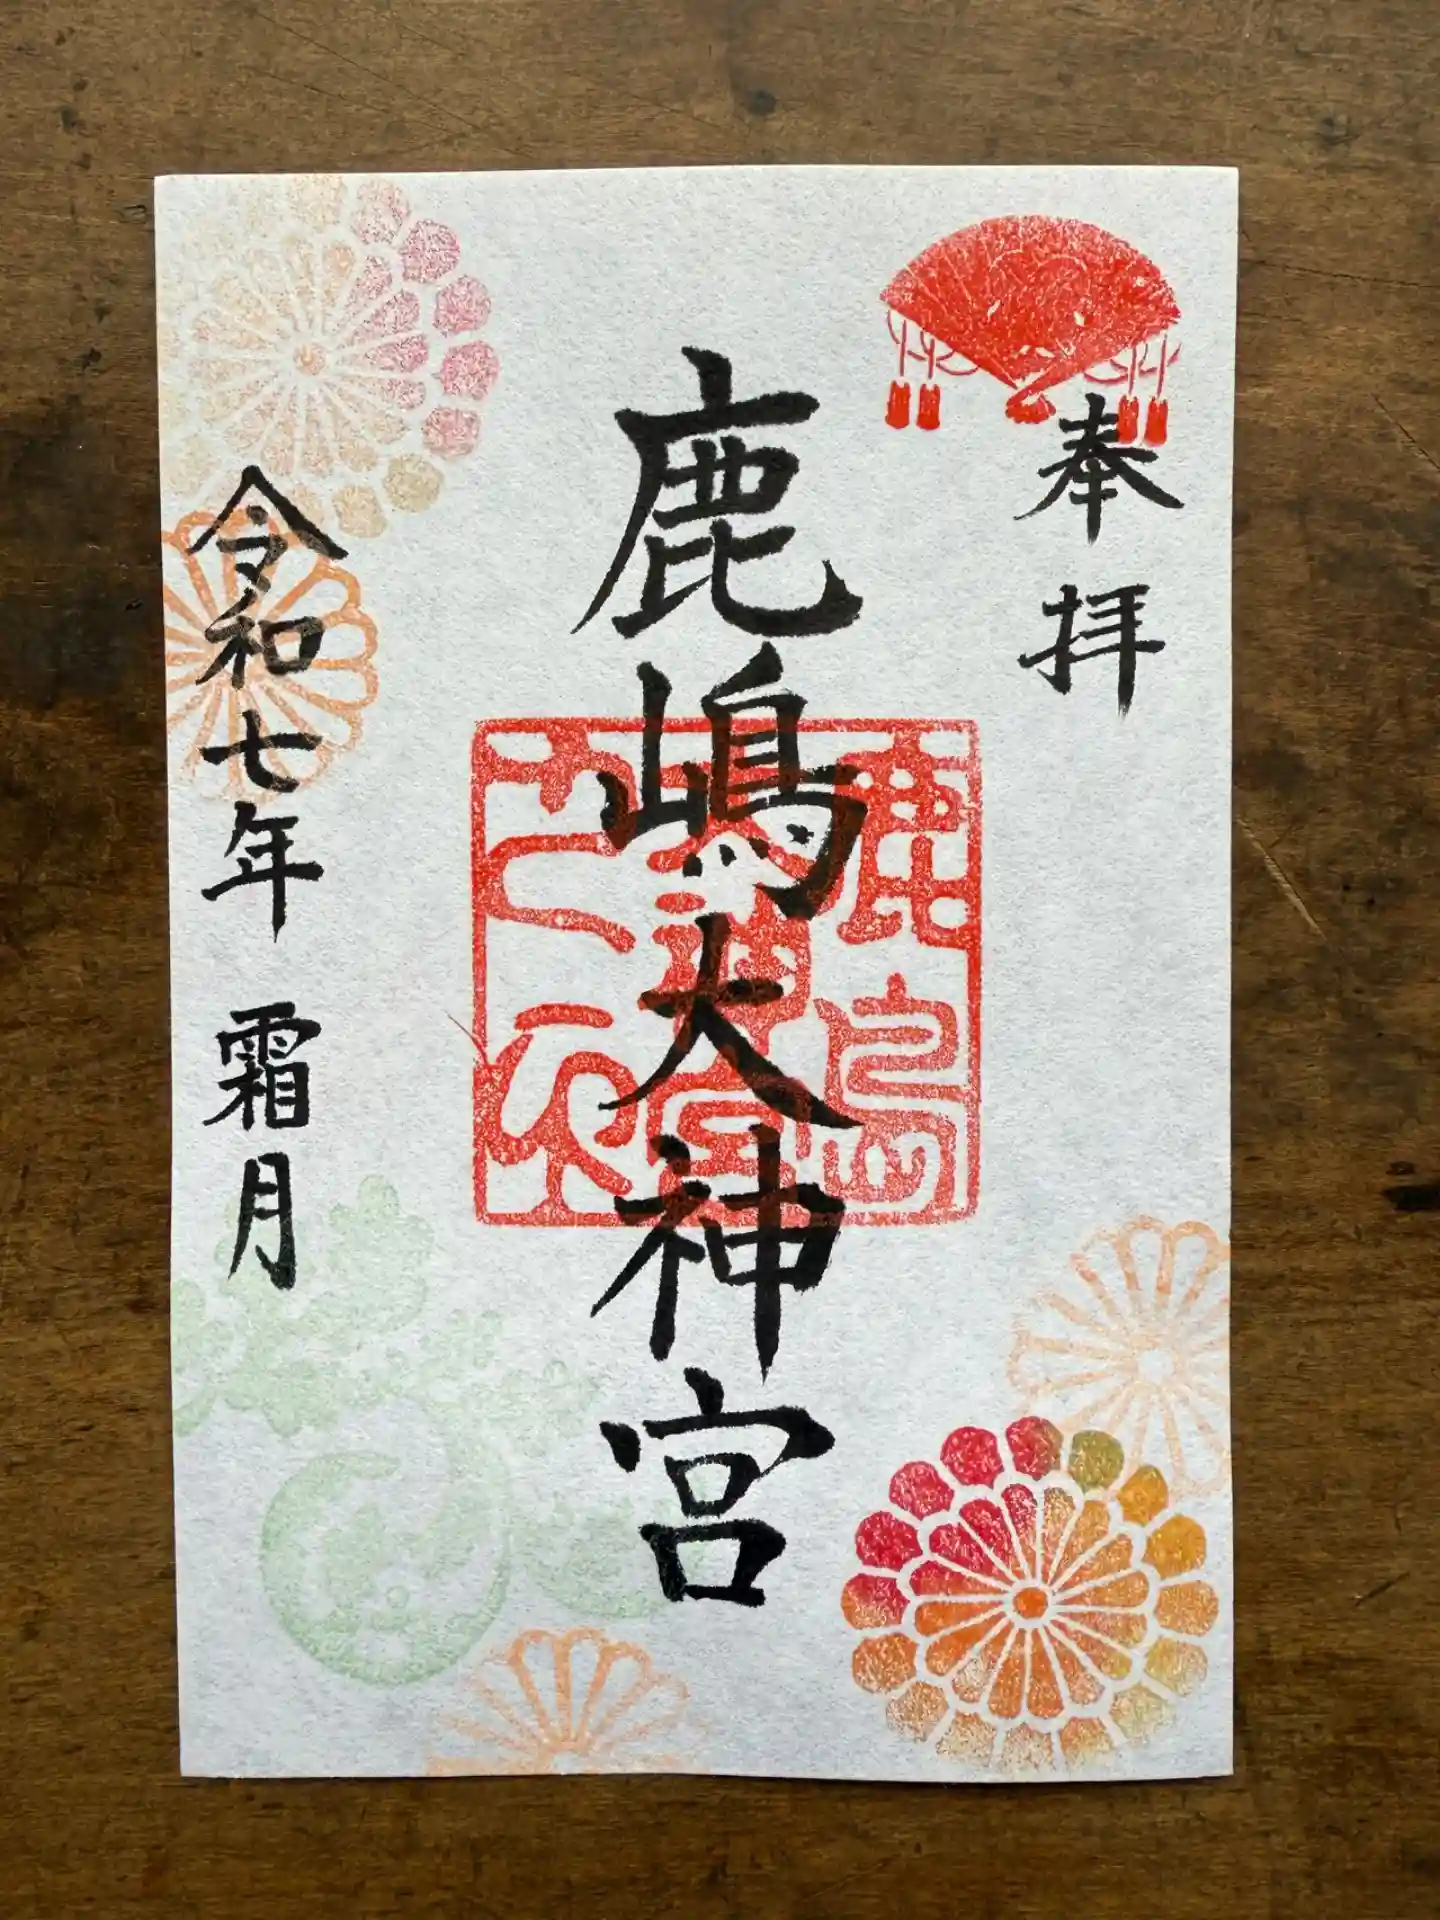 奉拝
鹿嶋大神宮
鹿島
神宮
令和七年 霜月